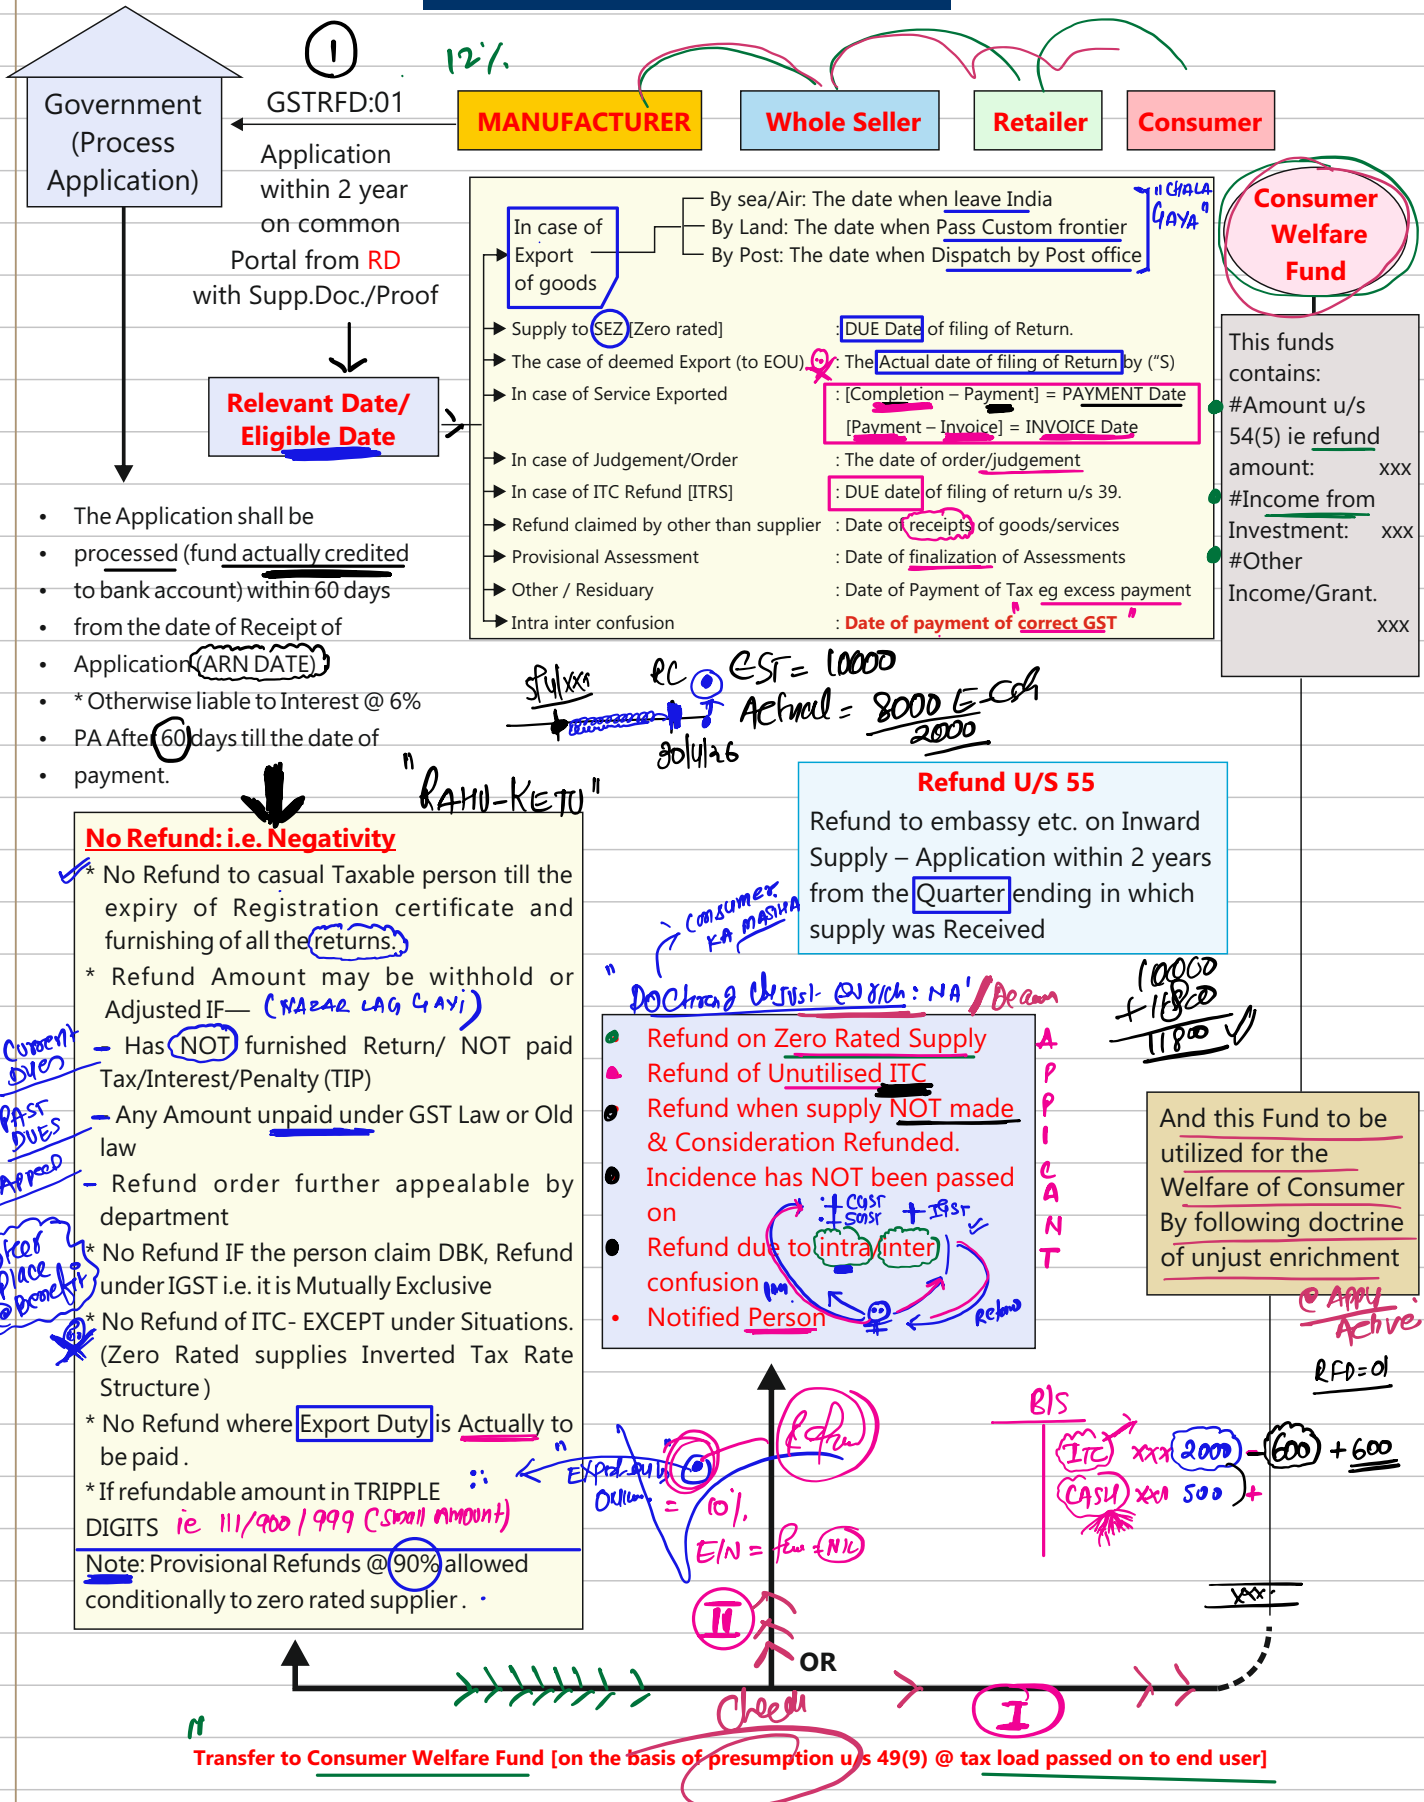 1
12%
Government
(Process
Application)
GSTRFD:01
Application
within 2 year
on common
Portal from RD
with Supp.Doc./Proof
MANUFACTURER
Whole Seller
Retailer
Consumer
Relevant Date/
Eligible Date
In case of
Export
of goods
By sea/Air: The date when leave India
By Land: The date when Pass Custom frontier
By Post: The date when Dispatch by Post office
"CHALA
GAYA"
Supply to SEZ [Zero rated] : DUE Date of filing of Return.
The case of deemed Export (to EOU) : The Actual date of filing of Return by ("S)
In case of Service Exported : [Completion – Payment] = PAYMENT Date
[Payment – Invoice] = INVOICE Date
In case of Judgement/Order : The date of order/judgement
In case of ITC Refund [ITRS] : DUE date of filing of return u/s 39.
Refund claimed by other than supplier : Date of receipts of goods/services
Provisional Assessment : Date of finalization of Assessments
Other / Residuary : Date of Payment of Tax eg excess payment
Intra inter confusion : Date of payment of "correct GST"
Consumer
Welfare
Fund
This funds
contains:
#Amount u/s
54(5) ie refund
amount: xxx
#Income from
Investment: xxx
#Other
Income/Grant.
xxx
• The Application shall be
• processed (fund actually credited
• to bank account) within 60 days
• from the date of Receipt of
• Application (ARN DATE)
• * Otherwise liable to Interest @ 6%
• PA After 60 days till the date of
• payment.
RC
EST = 10000
Actual = 8000
2000
30/4/26
"RAHU-KETU"
No Refund: i.e. Negativity
* No Refund to casual Taxable person till the
expiry of Registration certificate and
furnishing of all the returns.
* Refund Amount may be withhold or
Adjusted IF— (NAZAR LAG GAYi)
– Has NOT furnished Return/ NOT paid
Tax/Interest/Penalty (TIP)
– Any Amount unpaid under GST Law or Old
law
– Refund order further appealable by
department
* No Refund IF the person claim DBK, Refund
under IGST i.e. it is Mutually Exclusive
* No Refund of ITC- EXCEPT under Situations.
(Zero Rated supplies Inverted Tax Rate
Structure )
* No Refund where Export Duty is Actually to
be paid .
* If refundable amount in TRIPPLE
DIGITS ie 111/900/999 (small amount)
Note: Provisional Refunds @ 90% allowed
conditionally to zero rated supplier .
Current
Dues
PAST
DUES
place
@Benefit
Refund U/S 55
Refund to embassy etc. on Inward
Supply – Application within 2 years
from the Quarter ending in which
supply was Received
Consumer
KA MASIHA
10000
+1800
11800
• Refund on Zero Rated Supply
• Refund of Unutilised ITC
• Refund when supply NOT made
& Consideration Refunded.
• Incidence has NOT been passed
on
• Refund due to intra/inter
confusion
• Notified Person
+ CGST
+ SGST
+ IGST
Refund
A
P
P
I
C
A
N
T
And this Fund to be
utilized for the
Welfare of Consumer
By following doctrine
of unjust enrichment
@ Apply
Active
RFD=01
B/S
ITC xxx 2000 - 600 + 600
CASH xxx 500 +
Refund
= 10%
E/N = NIL
xxx
II
OR
Check
I
Transfer to Consumer Welfare Fund [on the basis of presumption u/s 49(9) @ tax load passed on to end user]